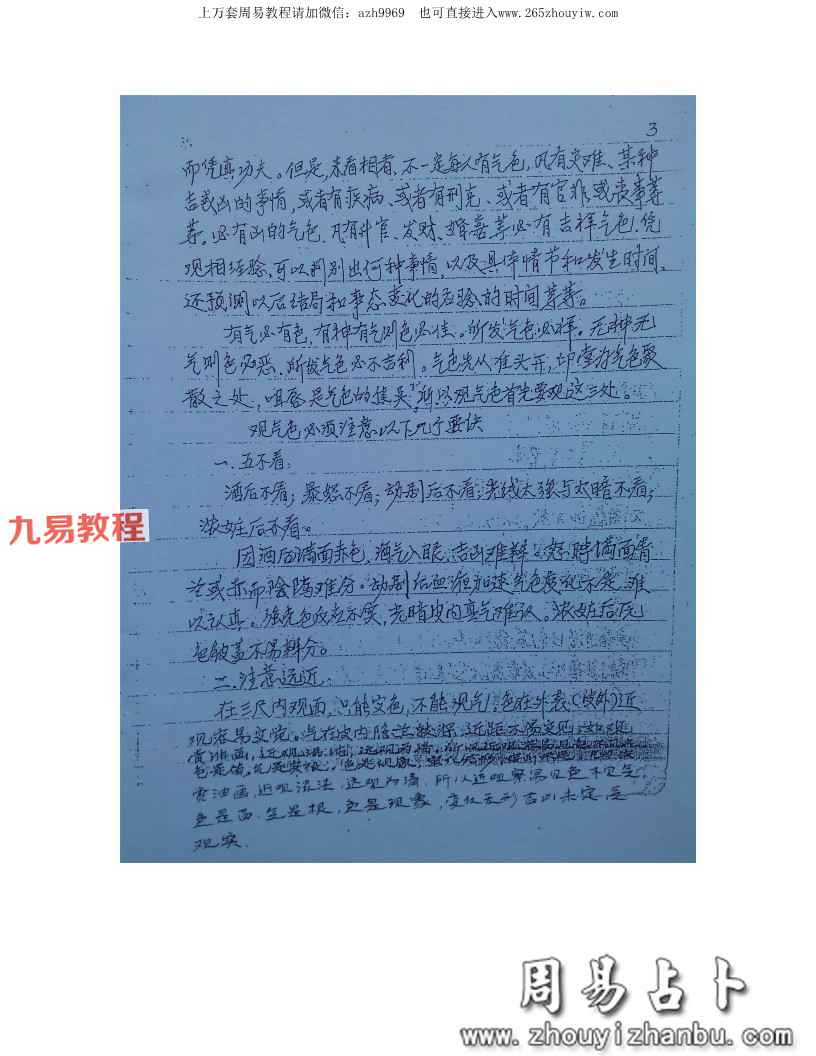 上万套周易教程请加微信：azh9969 也可直接进入www.265zhouyiw.com
3
而凭真功夫。但是，来看相者，不一定每人有气色，凡有灾难、某种
吉或凶的事情，或者有疾病、或者有刑克、或者有官非，或丧事等
等，必有凶的气色，凡有升官、发财、婚喜等必有吉祥气色，凭
观相经验，可以判别出何种事情，以及具体情节和发生时间，
还预测以后结局和事态变化的应验的时间等等。
有气必有色，有神有气则色必佳。所发气色必祥。无神无
气则色必恶，所发气色必不吉利。气色先从准头开，印堂为气色聚
散之处，咀唇是气色的性灵，所以观气色首先要观这三处。
观气色必须注意以下几个要诀
一、五不看：
酒后不看；暴怒不看；动剧后不看；光线太强与太暗不看；
浓妆后不看。
因酒后满面赤色，酒气入眼，吉凶难辩。怒时满面青
或赤而阴阳难分。动剧后血液加速气色变化不实，难
以认真。强光色反应不实，光暗皮内真气难认。浓妆后
色被盖不易辩分。
二、注意远近：
在三尺内观面，只能变色，不能观气，色在外表（皮外）近
观容易变觉。气在皮内
黄油画，近咀活法，远观
色是面，气是根，色是现象，变化无形吉凶未定
观实
九易教程
www.jiuyi8.com
周易占卜
www.zhouyizhanbu.com